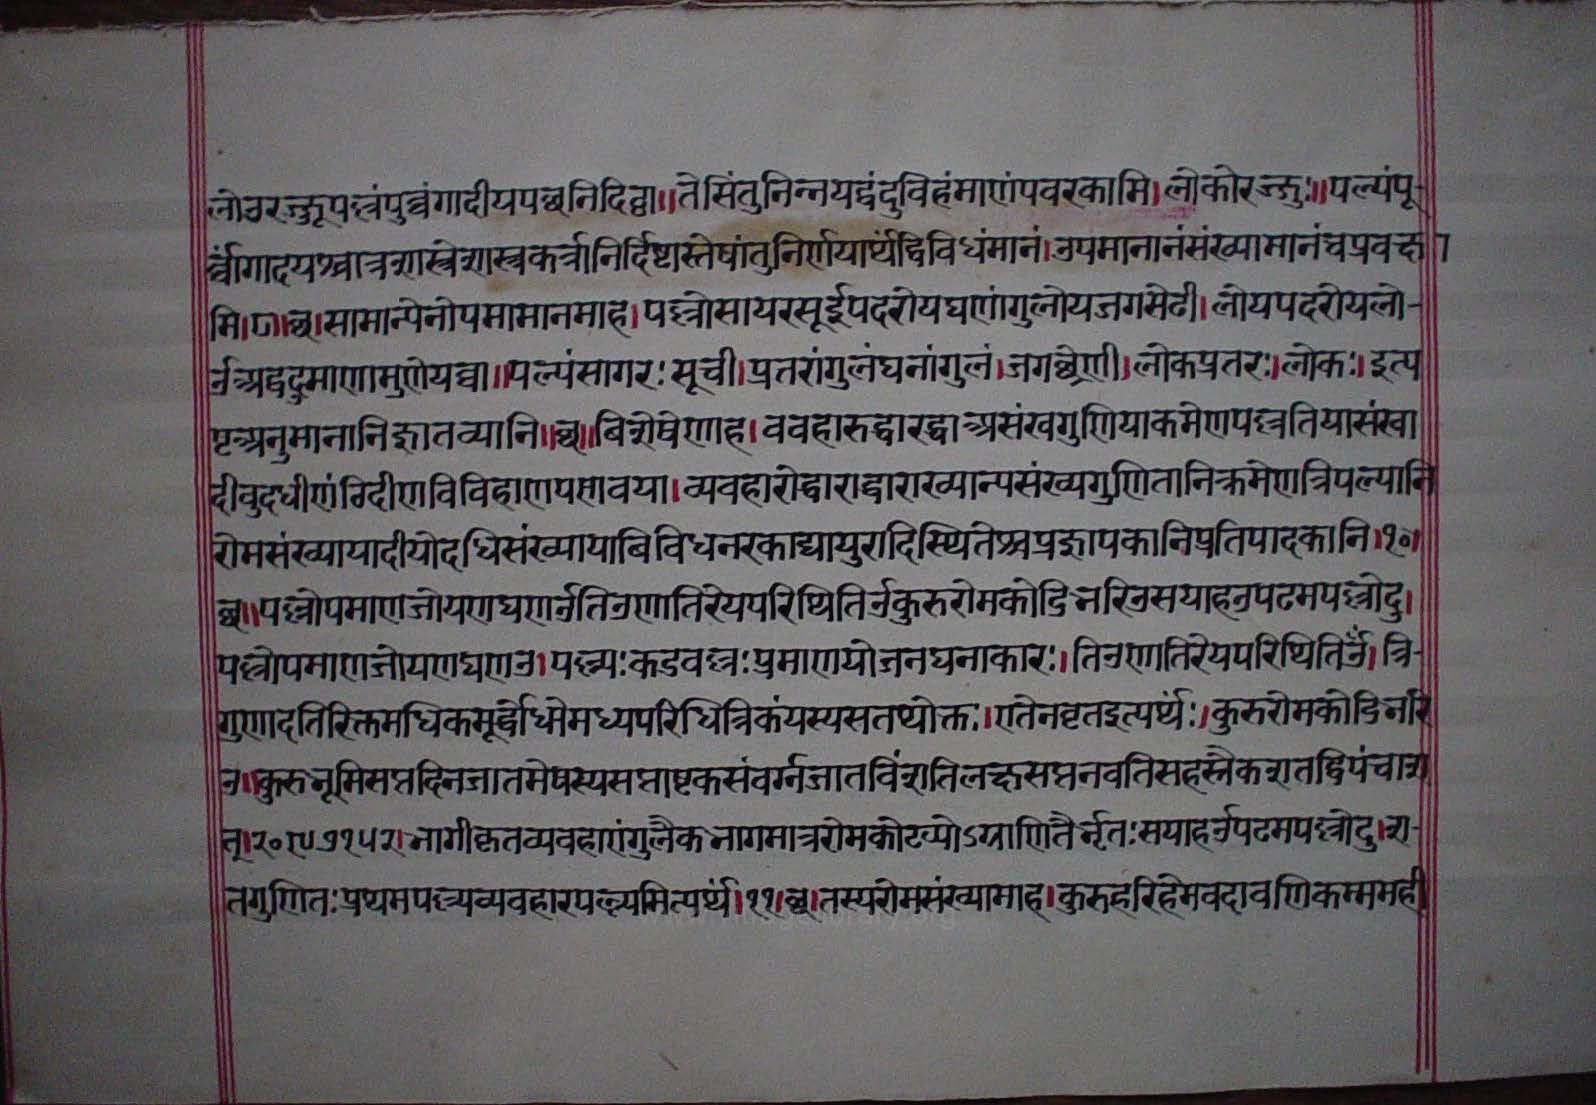 लोवरज्जूपल्लंपुव्वंगादीयपच्चनिदिट्ठा॥तेसिंतुनिन्नयट्ठंदुविहंमाणंपवरकामि।लोकोरज्जुः॥पल्यंपू-
र्व्वांगादयश्चात्रशास्त्रेशास्त्रकर्त्रानिर्दिष्टास्तेषांतुनिर्णयार्थंद्विविधंमानं।उपमानानंसंख्यामानंचप्रवक्ष्या
मि।९।छ।सामान्येनोपमामानमाह।पल्लोसायरसूईपदरोयघणंगुलोयजगसेढी।लोयपदरोयलो-
र्उअट्ठदुमाणामुणेयव्वा॥पल्यंसागरःसूची।प्रतरांगुलंघनांगुलं।जगछ्रेणी।लोकप्रतरः।लोकः।इत्य
ष्टअनुमानानिज्ञातव्यानि॥छ॥बिशेषेणाह।ववहारुद्धारद्धाअसंखगुणियाकमेणपल्लतियासंखा
दीवुदधीणंठिदीणविविहाणपणावया।व्यवहारोद्धाराद्धाराख्यान्यसंख्यगुणितानिक्रमेणत्रिपल्यानि
रोमसंख्यायादीयोदधिसंख्यायाबिविधनरकाद्यायुरादिस्थितेश्चप्रज्ञापकानिप्रतिपादकानि।१०।
छ॥पल्लोपमाणजोयणघणर्उतिउणतिरेयपरिधितिर्उकुरुरोमकोडिभरिउसयाहउपढमपल्लोदु।
पल्लोपमाणजोयणघणउ।पल्यःकडवल्लःप्रमाणयोजनघनाकारः।तिउणतिरेयपरिधितिर्उ।त्रि-
गुणादतिरिक्तमधिकमूर्द्ध्वाधोमध्यपरिधित्रिकंयस्यसतथोक्तः।एतेनवृतइत्यर्थः।कुरुरोमकोडिभरि
उ।कुरुभूमिसप्तदिनजातमेषस्यसप्ताष्टकसंवर्ग्गजातविंशतिलक्षसप्तनवतिसहस्रैकशतद्विपंचाश
त्।२०९७१५२।भागीकृतव्यवहारांगुलैकभागमात्ररोमकोटव्योऽग्राणितैर्भृतःसयाहर्उपढमपल्लोदु।श-
तगुणितःप्रथमपल्यव्यवहारपल्यमित्यर्थं।११।छ।तस्यरोमसंख्यामाह।कुरुहरिहेमवदावणिकम्ममही